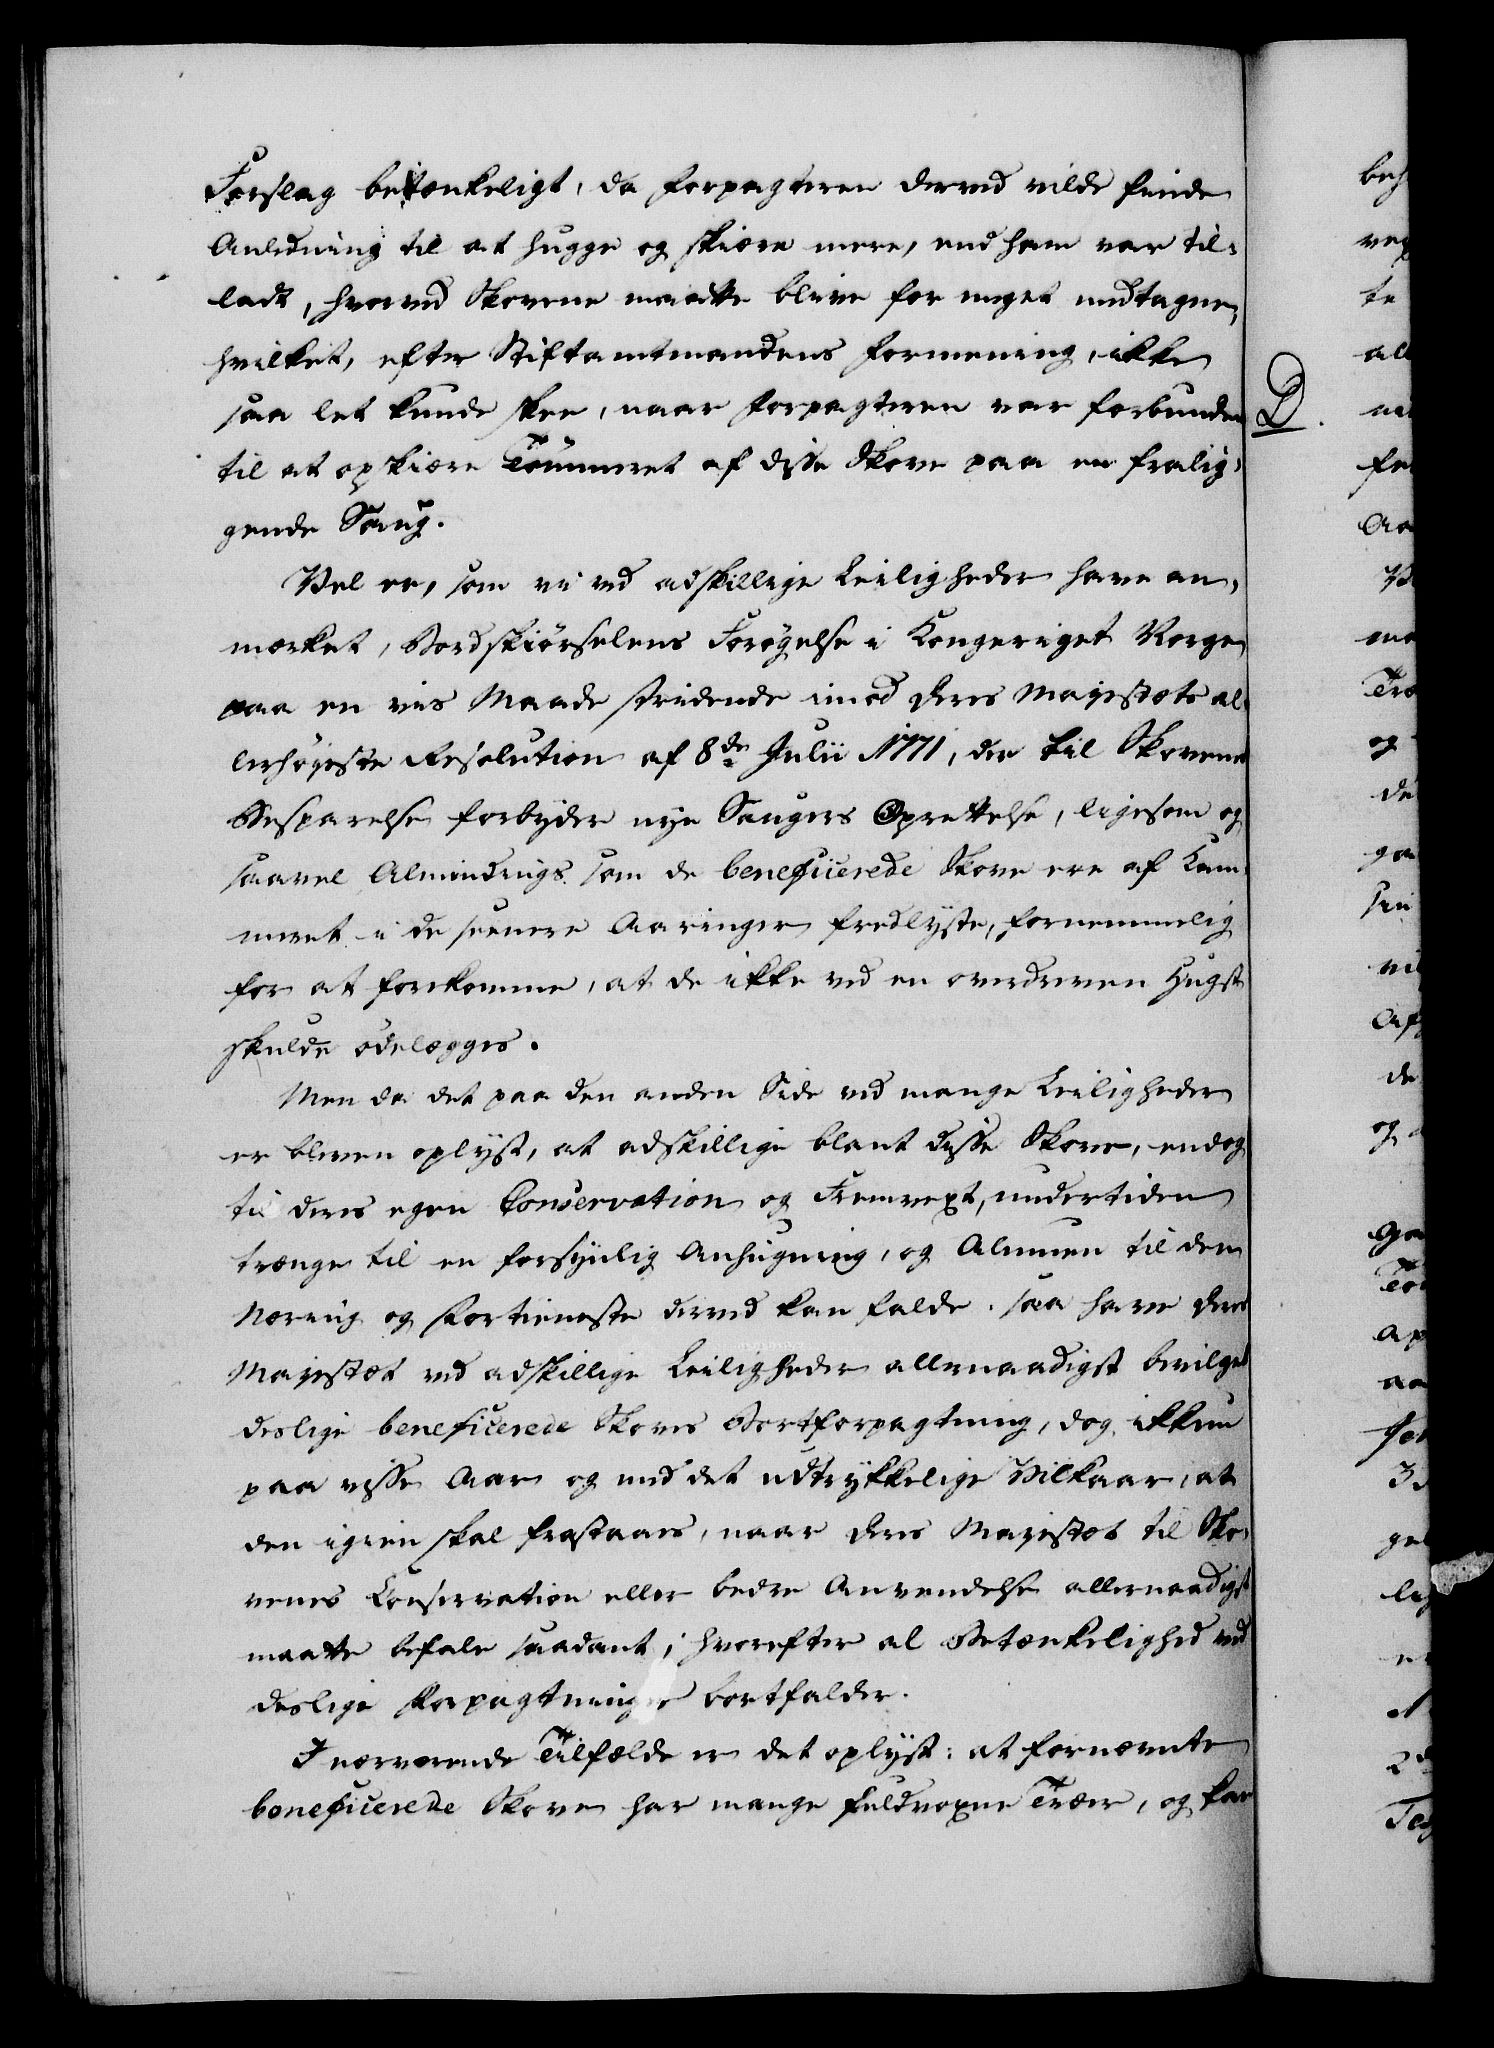 Forslag betænkeligt, da Forpagteren derved vilde finde
Anledning til at hugge og skiære mere, end ham var til-
ladt, hvorved Skovene maatte blive for meget medtagne,
hvilket, efter Stiftamtmandens Formening, ikke
saa let kunde skee, naar Forpagteren var forbunden
til at opskiære Tömmeret af disse Skove paa en fralig-
gende Saug.
Vel er, som vi ved adskillige Leiligheder have an-
mærket, Bordskiørselens Forøgelse i Kongeriget Norge
paa en vis Maade stridende imod Deres Majestæts al-
lerhøjeste Resolution af 8de Julii 1771, der til Skovenes
Besparelse forbyder nye Saugers Oprettelse, ligesom og
saavel Almindings som de beneficerede Skove ere af Kam-
meret i de seenere Aaringer fredlyste, fornemmelig
for at forekomme, at de ikke ved en overdreven Hugst
skulde ödelægges.
Men da det paa den anden Side ved mange Leiligheder
er bleven oplyst, at adskillige blant disse Skove, endog
til deres egen Conservation og Fremvext, undertiden
trænge til en forsynlig Anhugning, og Almuen til den
Næring og Fortieneste derved kan falde, saa have Deres
Majestæt ved adskillige Leiligheder allernaadigst bevilget
deslige beneficerede Skoves Bortforpagtning, dog ikkun
paa visse Aar og med det udtrykkelige Vilkaar, at
den igien skal frastaaes, naar Deres Majestæt til Sko-
venes Conservation eller bedre Anvendelse allernaadigst
maatte befale saadant; hvorefter al Betænkelighed ved
deslige Forpagtninger bortfalder.
I nærværende Tilfælde er det oplyst: at fornævnte
beneficerede Skove har mange fuldvoxne Træer, og kan
D.